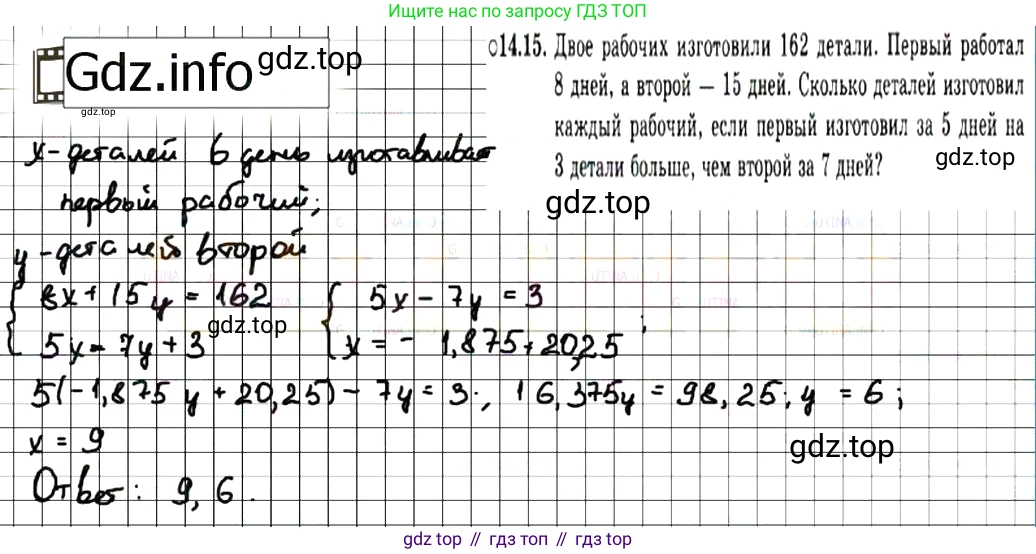 Ищите нас по запросу ГДЗ ТОП
Gdz.info
gdz.top
gdz.top
с14.15. Двое рабочих изготовили 162 детали. Первый работал
8 дней, а второй — 15 дней. Сколько деталей изготовил
каждый рабочий, если первый изготовил за 5 дней на
3 детали больше, чем второй за 7 дней?
gdz.top
gdz.top
x - деталей в день изготавливает
первый рабочий;
y - деталей второй
8x + 15y = 162
5x = 7y + 3
gdz.top
5x - 7y = 3
x = - 1,875 + 20,25 ;
5(-1,875 y + 20,25) - 7y = 3 ; 16,375y = 98,25; y = 6 ;
x = 9
gdz.top
Ответ: 9, 6.
gdz.top // гдз топ // gdz top